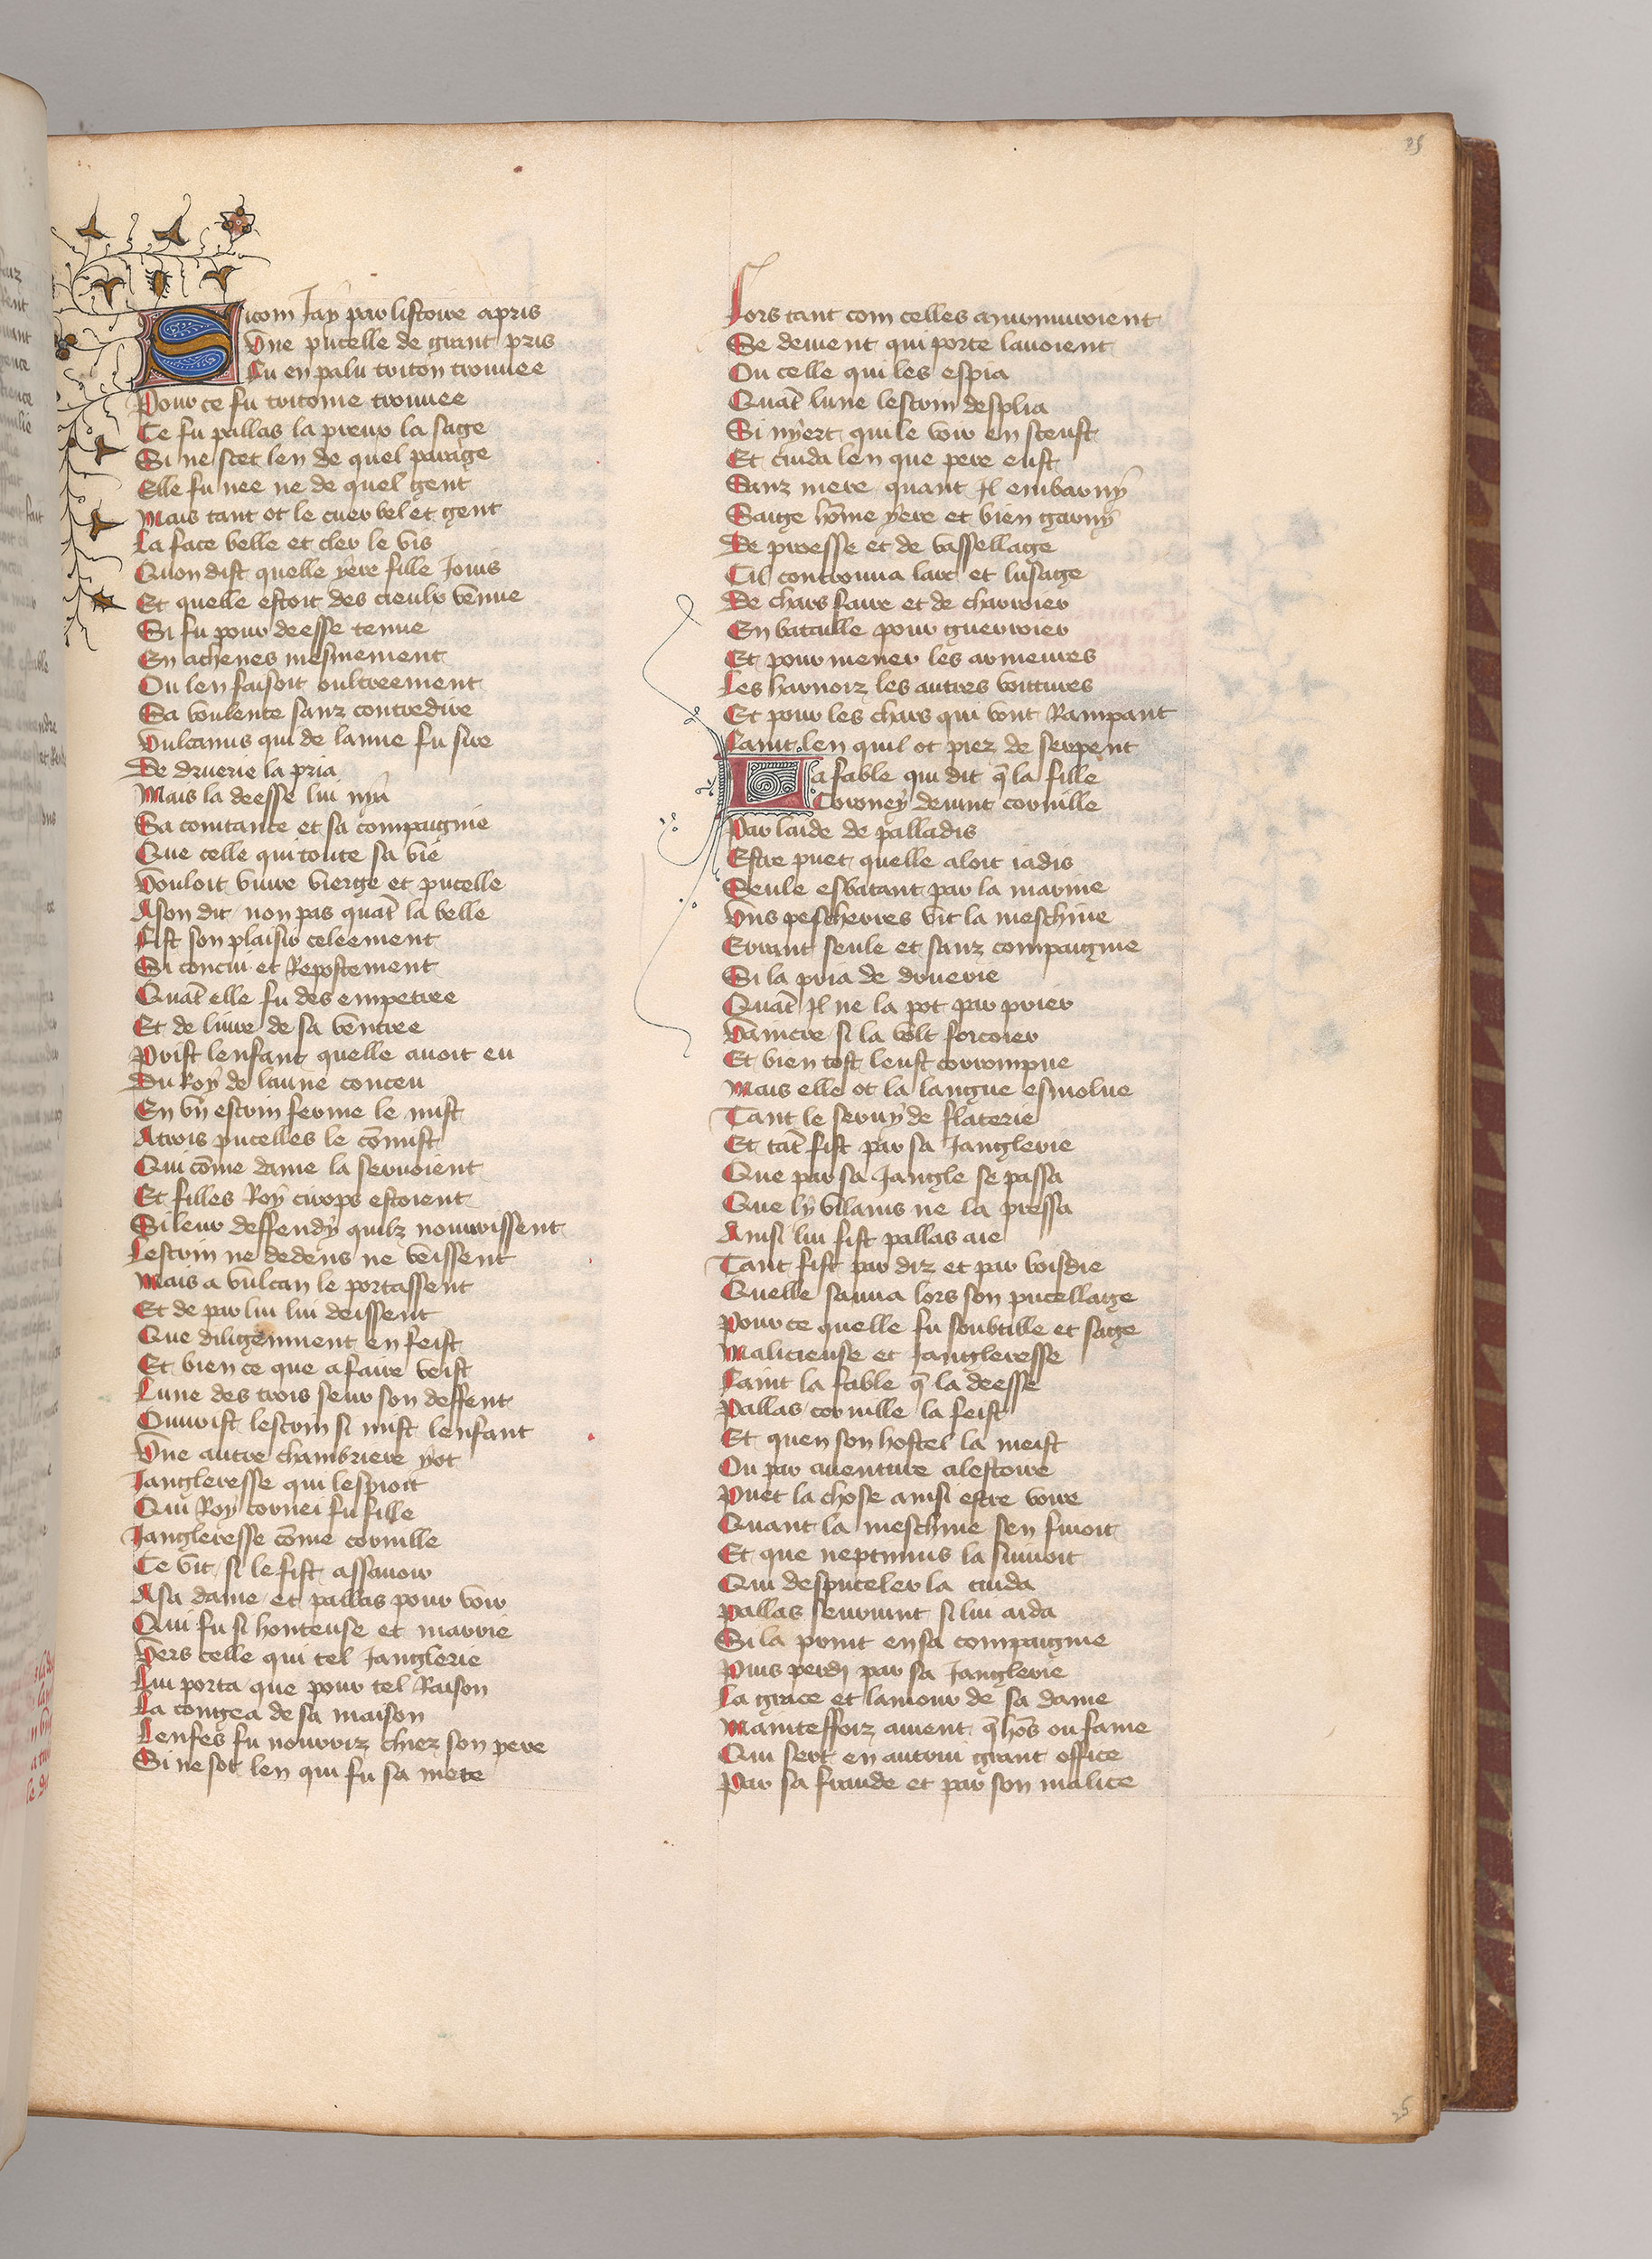 25
Sicom Jay par listoire apris
Vne pucelle de grant pris
Fu en palu triton trouuee
Pour ce fu tritonie trouuee
Ce fu pallas la preur la sage
Si ne scet len de quel parage
Elle fu nee ne de quel gent
Mais tant ot le cuer bel et gent
La face belle et cler le vis
Quon dist quelle yere fille Jouis
Et quelle estoit des cieulx venue
Si fu pour deesse tenue
En athenes mesmement
Ou len faisoit oultreement
Sa voulente sanz contredire
Vulcanus qui de lanne fu sire
De druerie la pria
Mais la deesse lui nya
Sa comtance et sa compaignie
Que celle qui toute sa vie
Vouloit viure vierge et pucelle
A son dit non pas quat̃ la belle
Fist son plaisir celeement
Si conciu et Repostement
Quat̃ elle fu des empetree
Et de liure de sa ventree
Prist lenfant quelle auoit eu
Du Roy de laune conceu
En vn̄ escrin ferme le mist
A trois pucelles le cōmist
Qui cōme dame la seruoient
Et filles Roy cirops estoient
Si leur deffendy quilz nouurissent
Lescrin ne dedens ne veissent
Mais a vulcan le portassent
Et de par lui lui deissent
Que diligẽment en feist
Et bien ce que a faire veist
Lune des trois seur son deffent
Ouurist lescrin si mist lenfant
Vne autre chambriere yot
Jangleresse qui lespioit
Qui Roy cornei fu fille
Jangleresse cōme cornille
Ce vit si le fist assauoir
A sa dame et pallas pour voir
Qui fu si honteuse et marrie
Vers celle qui tel Janglerie
Lui porta que pour tel Raison
La congea de sa maison
Lenfes fu nourriz chiez son pere
Si ne sot len qui fu sa mere
Lors tant com celles amurmuroient
Se deuient qui porte lauoient
Ou celle qui les espia
Quat̃ lune lescrin desplia
Si nyert qui le voir en sceust
Et cuida len que pere eust
Sanz mere quant Jl embarny
Saige hōme yere et bien garny
De proesse et de vassellage
Cil controuua lart et lusage
De chars faire et de charroier
En bataille pour guerroier
Et pour mener les armeures
Les harnoiz les autres voitures
Et pour les chars qui vont Rampant
Faint len quil ot piez de serpent
La fable qui dit q̄ la fille
Coroney deuint cornille
Par laide de palladis
Estre puet quelle aloit iadis
Seule esbatant par la marine
Vns peschierres vit la meschine
Errant seule et sanz compaignie
Si la pria de druerie
Quat̃ Jl ne la pot par prier
Vaincre si la volt forcoier
Et bien tost leust corrompue
Mais elle ot la langue esmolue
Tant le seruy de flaterie
Et tat̃ fist par sa Janglerie
Que par sa Jangle se passa
Que ly villains ne la pressa
Ainsi lui fist pallas aie
Tant fist par diz et par voisdie
Quelle sauua lors son pucellage
Pour ce quelle fu soubtille et sage
Malicieuse et Jangleresse
Faint la fable q̄ la deesse
Pallas cornille la feist
Et quen son hostel la meist
Ou par auenture a lestoire
Puet la chose ainsi estre voire
Quant la meschine sen fuioit
Et que neptunus la siuuoit
Qui despuceler la cuida
Pallas seuruint si lui aida
Si la print en sa compaignie
Puis perdj par sa Janglerie
La grace et lamour de sa dame
Mainteffoiz auient q̄ hōs ou fame
Qui sert en autrui grant office
Par sa fraude et par son malice
25